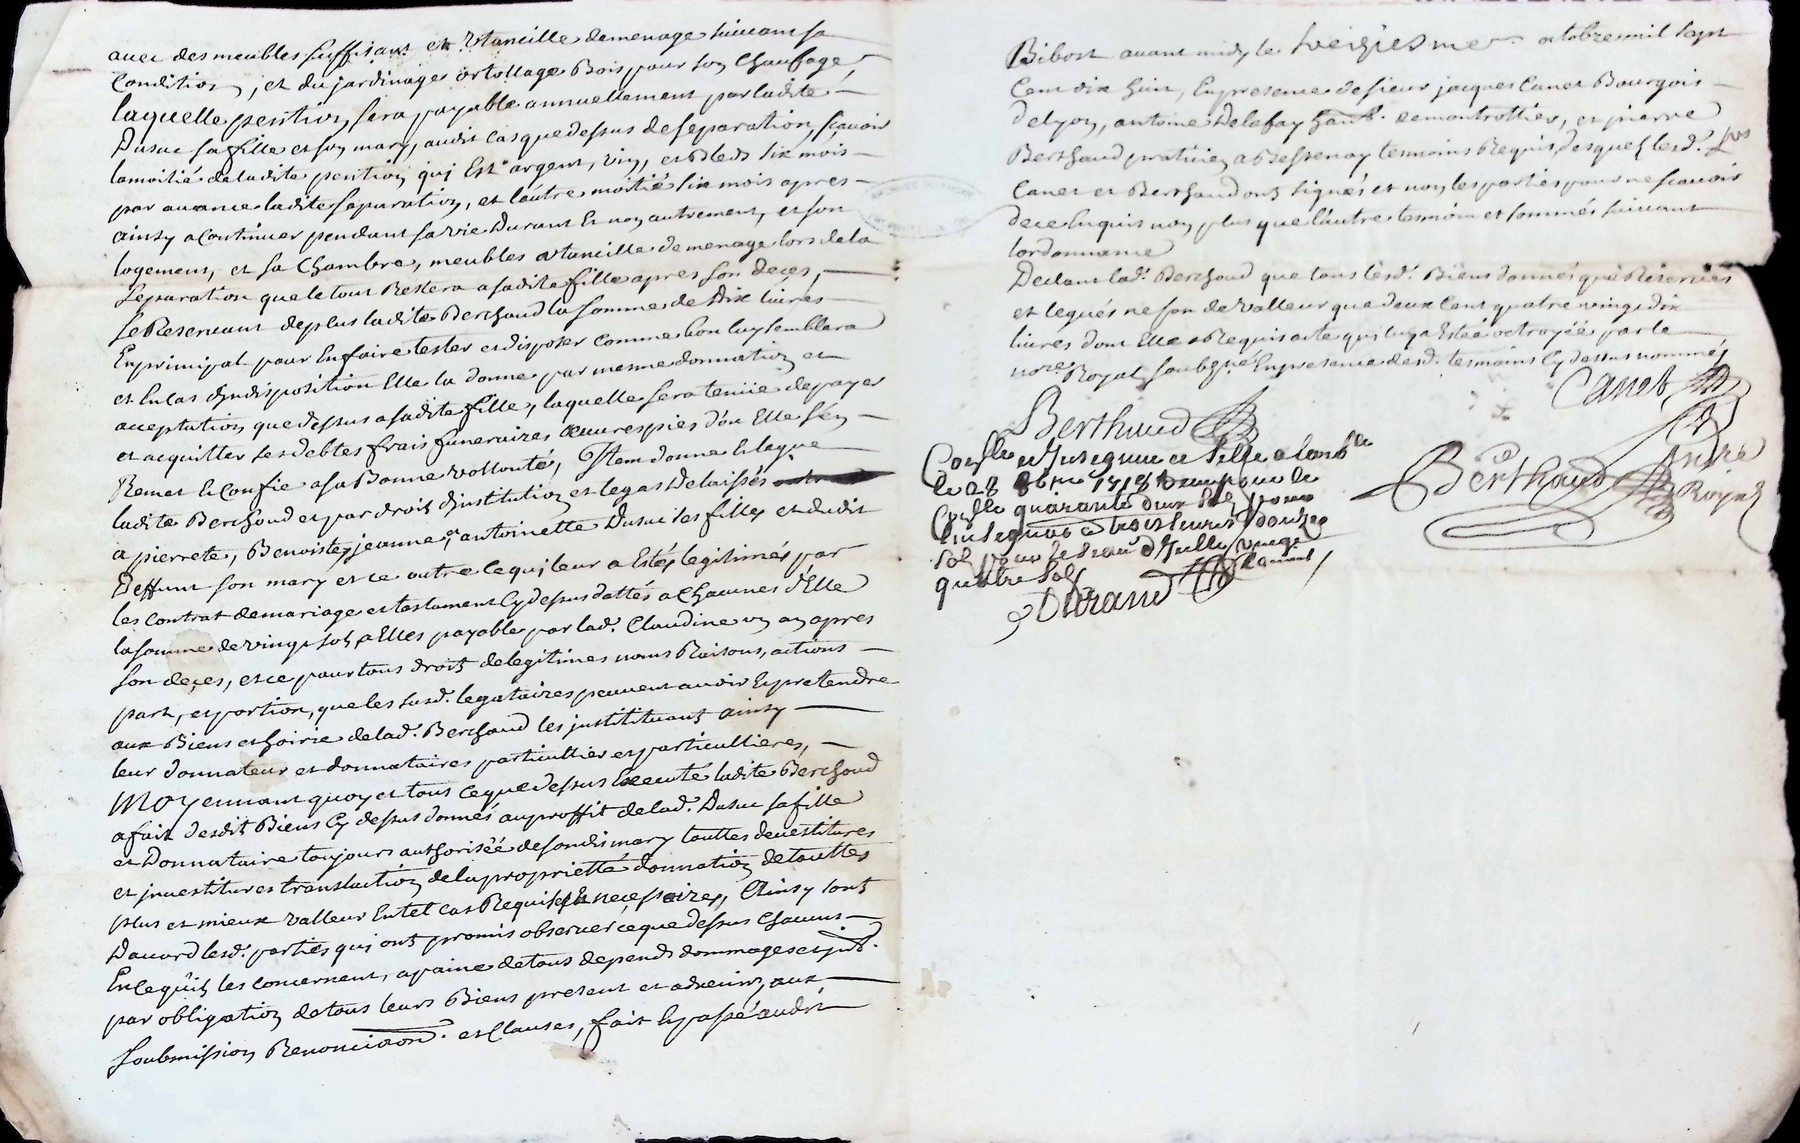 avec des meubles suffisant et utancille demenage suivant sa
Condition, et du jardinage ortollage Bois pour son Chaufage
laquelle pention sera payable annuellement par ladite
Dusuc sa fille et son mary, audit cas que dessus de separation, sçavoir
lamoitié de ladite pention qui Est argent, vin, et Bleds six mois
par avance ladite separation, et l'autre moitié six mois apres
ainsy a Continuer pendant sa vie Durant Et non autrement, et son
logement, et sa Chambre, meubles utancille de menage lors de la
separation que le tout Restera a sadite fille apres son deces,
se Reservant de plus ladite Berthaud la somme de Dix livres
En principal pour En faire tester et disposer Comme bon luy semblera
et En cas d'indisposition Elle la donne par mesme donnation et
acceptation que dessus a sadite fille, laquelle sera tenüe de payer
et acquitter ses debtes frais funeraires œuvres pies d'ou Elle s'en
Remet Et Confie a sa Bonne vollonté, Item donne Et legue
ladite Berthaud et par droit d'institution et legat Delaissés
a pierrete, Benoiste, jeanne, et antoinette Dusuc ses filles et dudit
Deffunt son mary et ce outre ce qui leur a Estés legitimés par
les Contrat de mariage et testament Cy dessus dattés a Chacunes d'Elle
la somme de vingt sols a Elles payable par lad. Claudine un an apres
son deces, et ce pour tous droits de legitimes noms Raisons, actions
part, et portion, que les susd. legataires peuvent avoir Et pretendre
aux Biens et hoirie de lad. Berthaud les instituant ainsy
leur donnateur et donnataires particullier et particullieres,
Moyennant quoy et tout ce que dessus Executé ladite Berthaud
a fait desdit Biens Cy dessus donnés au proffit de lad. Dusuc sa fille
et Donnataire toujours authorisée de sondit mary touttes devestitures
et investitures translaction de la proprietté donnation de touttes
plus et mieux valleur En tel cas Requises Et necessaires, Ainsy sont
D'acord lesd. parties qui ont promis observer ce que dessus Chacuns
En ce qu'il les Concernent, a paine de tous depends dommages et int.
par obligation de tous leurs Biens present et advenir, aux
soubmission Renonciaon. et Clauses, fait Et passé audit
Bibost avant midy le seiziesme octobre mil sept
Cent dix huit, En presence de sieur jacques Canet Bourgois
de Lyon, antoine Delafay hant. de montrottier, et pierre
Berthaud praticien a Bessenay tesmoins Requis, desquels lesd. srs
Canet et Berthaud ont signés et non les parties pour ne sçavoir
de ce Enquis non plus que l'autre tesmoin et sommés suivant
l'ordonnance
Declant lad. Berthaud que tous lesd. Biens donnés que Réservés
et legués ne son de valleur que deux Cent quatre vingt dix
livres dont Elle a Requis acte qui luy a Esté octroyée par le
nore Royal soubzné En presence desd. tesmoins Cy dessus nommés
Canet
Berthaud
Berthaud
nore
Royal
Conlle et Insignué et
le 28 8bre 1718
Conlle quarante deux sols pour
l'insignuaon trois livres douze
sols pour le
quatre sols
Durand